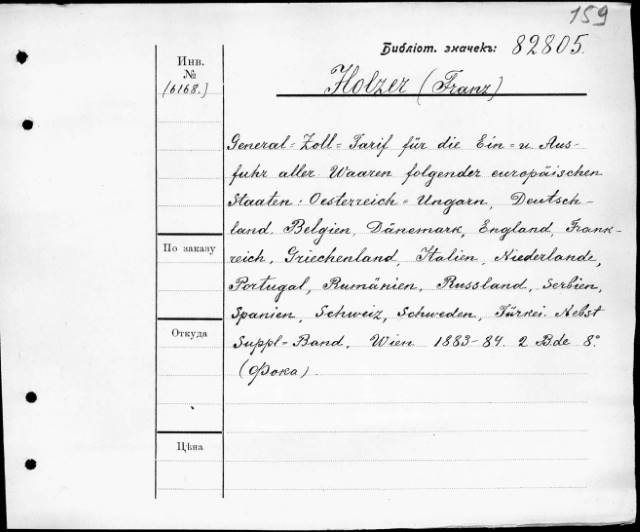 159
Библіот. значекъ: 82805.
Инв.
№
(6168.)
Holzer (Franz)
General=Zoll=Tarif für die Ein= u. Aus-
fuhr aller Waaren folgender europäischen
Staaten: Oesterreich=Ungarn, Deutsch-
land. Belgien, Dänemark, England, Frank-
reich, Griechenland, Italien, Niederlande,
Portugal, Rumänien, Russland, Serbien,
Spanien, Schweiz, Schweden, Türkei. Nebst
Suppl=Band. Wien 1883-84. 2 Bde 8°.
(Фока).
По заказу
Откуда
Цѣна